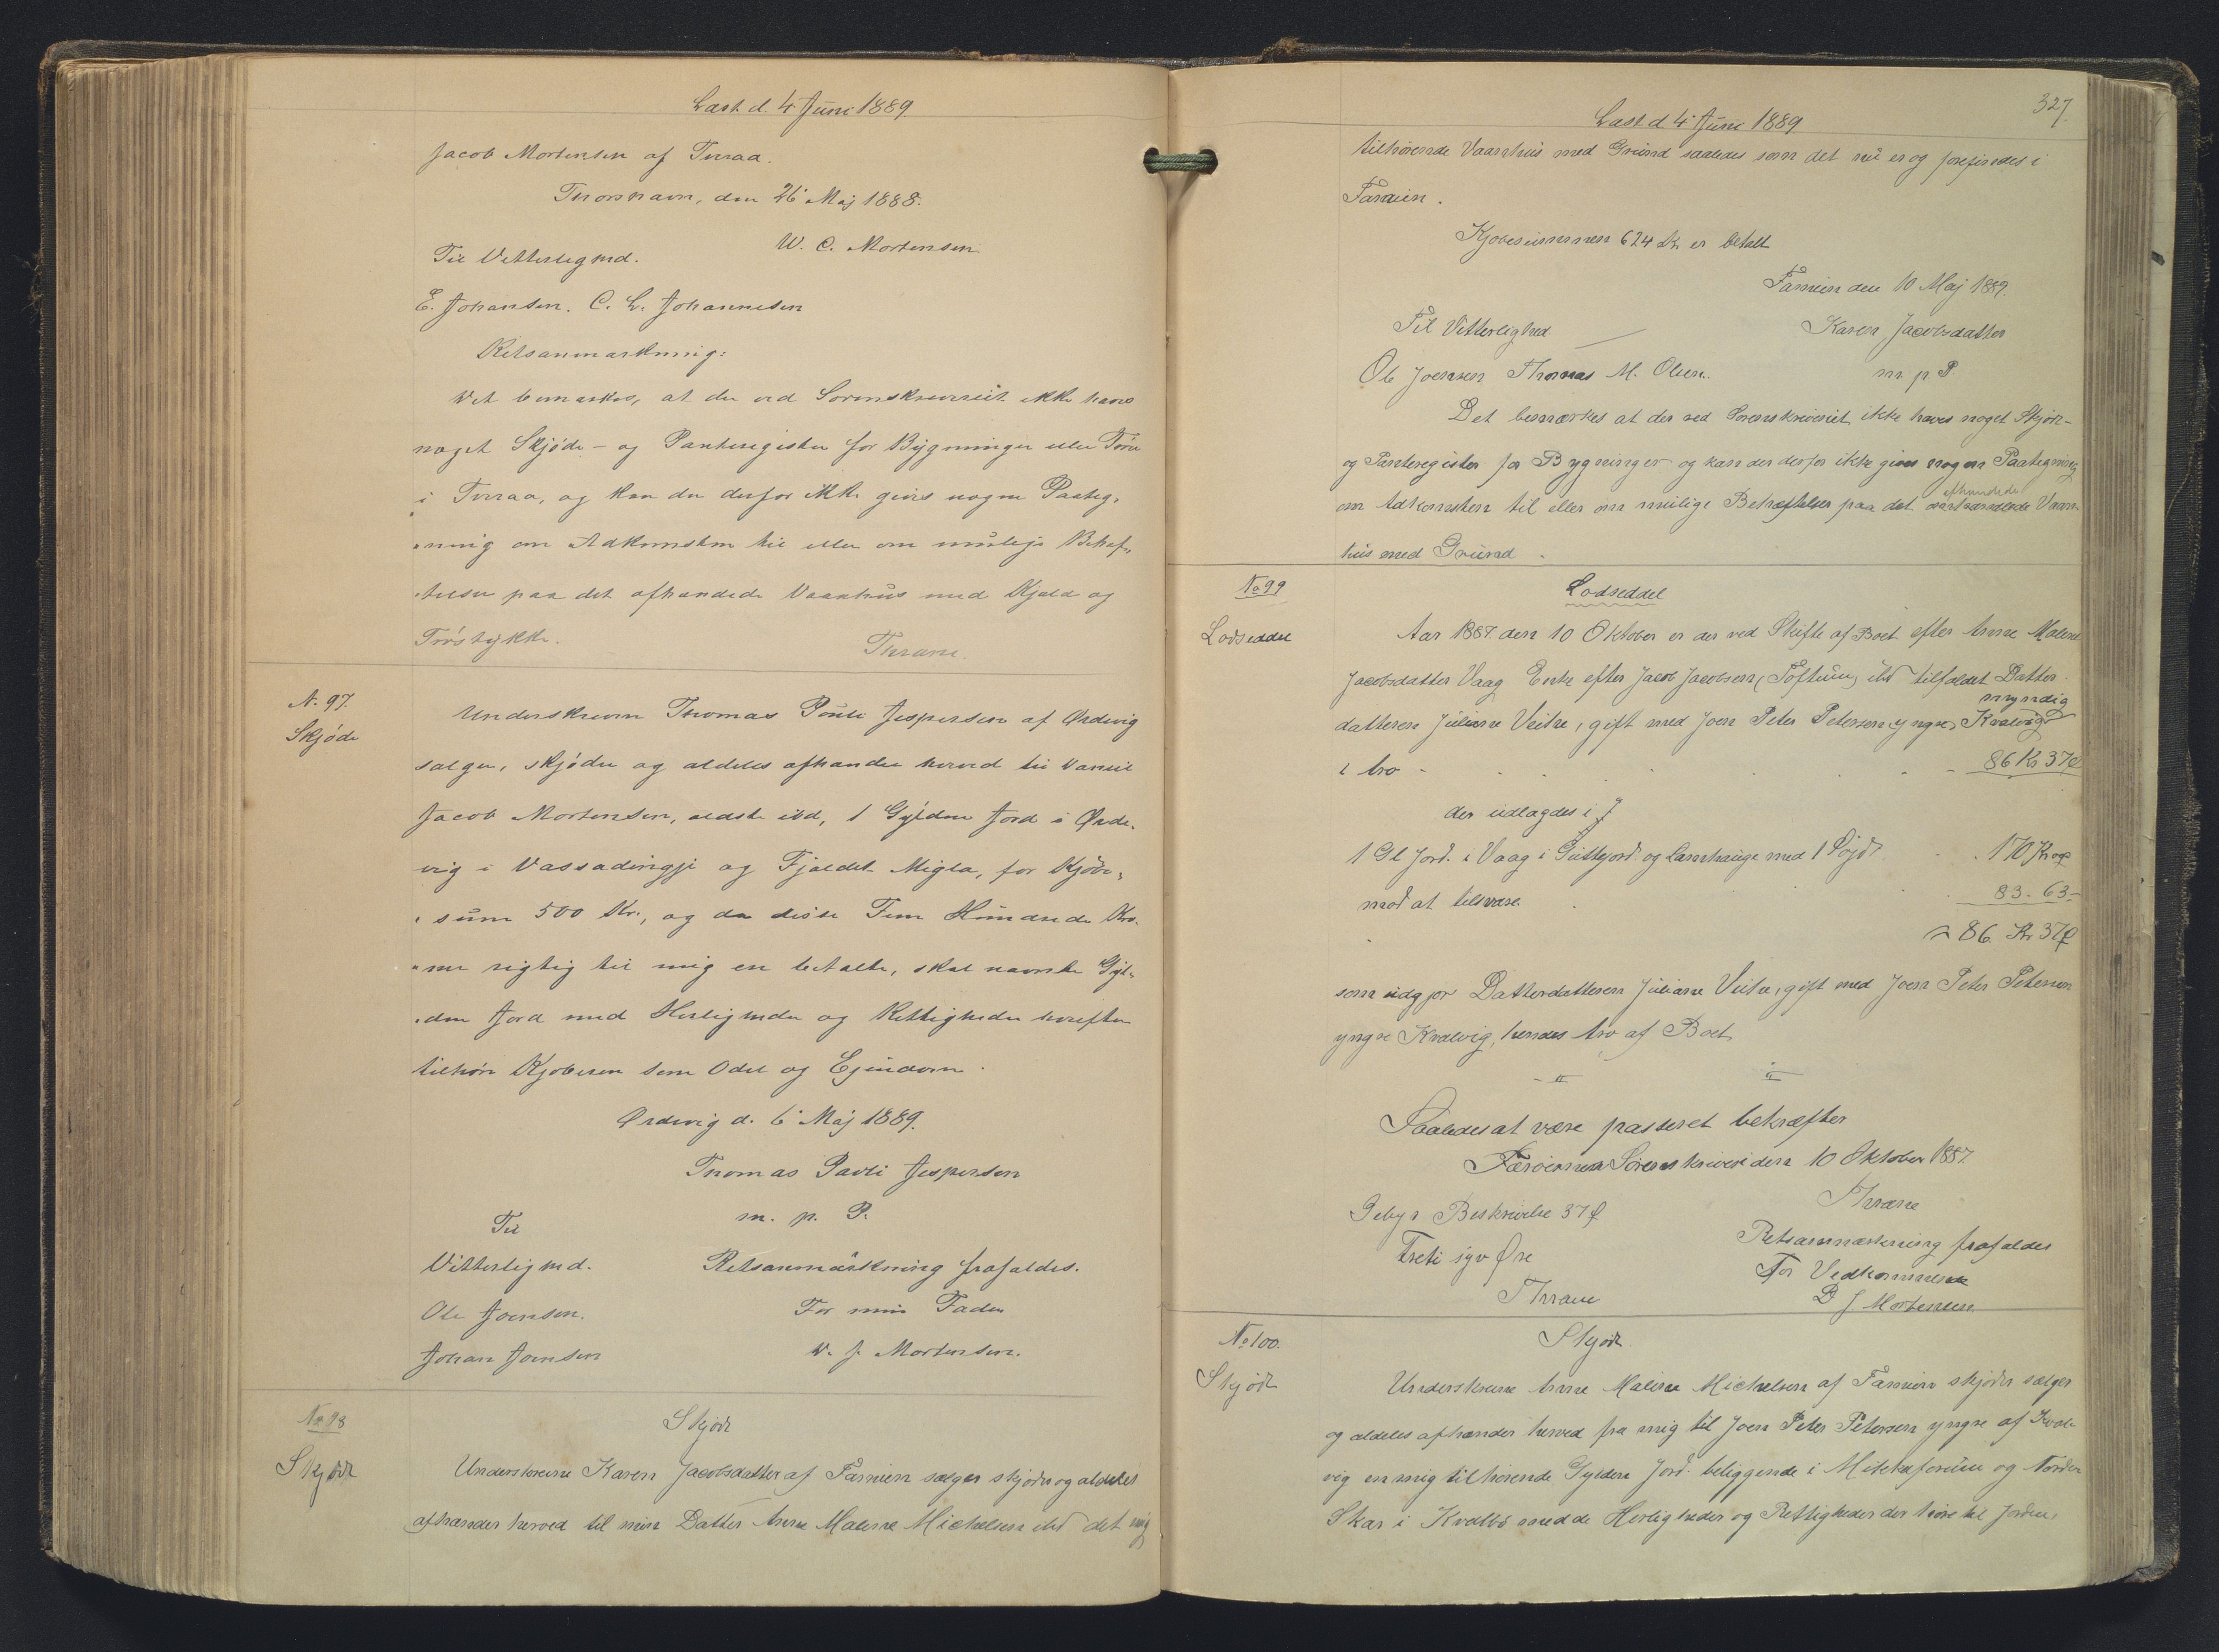 Læst d. 4 Juni 1889
Jacob Mortensen af Tveraa.
Thorshavn, den 26' Maj 1888.
W. C. Mortensen
Til Vitterlighed.
E. Johansen. C. L. Johannesen
Retsanmærkning:
Det bemærkes, at der ved Sorenskriveriet ikke haves
noget Skjöde- og Panteregister for Bygninger eller
i Tveraa, og kan der derfor ikke gives nogen Paateg-
ning om Adkomsten til eller om mulige Behæf-
telser paa det afhændede Vaanhus med Kjeld og
Thrane.
N. 97.
Skjöde
Underskrevne Thomas Pouli Jespersen af Ördevig
sælger, skjöder og aldeles afhænder herved til Daniel
Jacob Mortensen, ældste ibd, 1 Gylden Jord i Örde-
vig i Vassadingji og Fjeldet Migla, for Kjöbe-
sum 500 Kr., og da disse Fem Hundrede Kro-
ner rigtig til mig er betalte, skal nævnte Gyl-
den Jord med Herligheder og Rettigheder herefter
tilhöre Kjöberen som Odel og Ejendom.
Ördevig d. 6' Maj 1889.
Thomas Pavli Jespersen
m. p. P.
Til
Vitterlighed.
Retsanmärkning frafaldes.
Ole Joensen.
For min Fader
Johan Joensen
D. J. Mortensen.
No 98
Skjöde
Skjöde
Underskrevne Karen Jacobsdatter af Famien sælger skjöder og aldeles
afhænder herved til min Datter Anne Malene Michelsen ibd det mig
327.
Læst d 4' Juni 1889
tilhörende Vaanhus med Grund saaledes som det nu er og forefindes i
Famien.
Kjöbesummen 624 Kr er betalt
Famien den 10 Maj 1889.
Til Vitterlighed
Karen Jacobsdatter
Ole Joensen Thomas M. Olsen.
m. p. P
Det bemærkes at der ved Sorenskriveriet ikke haves noget Skjöde-
og Panteregister for Bygninger og kan der derfor ikke gives nogen Paategning
om Adkomsten til eller om mulige Behæftelser paa det afhændede Vaan-
hus med Grund.
No 99
Lodseddel
Lodseddel
Aar 1887 den 10 Oktober er der ved Skifte af Boet efter Anne Malene
Jacobsdatter Vaag Enke efter Jacob Jacobsen (Toftum) ibd tilfaldet Datter-
datteren Juliane Veitre, gift med Joen Peter Petersen yngre, Kvalvig myndig
i Arv 86 Kr 37 Ø
der udlagdes i J
1 Gl Jord i Vaag i og Lamhauge med 1 170 Kr
mod at tilsvare 83 - 63 -
86. Kr 37 Ø
som udgjør Datterdatteren Juliane Veitre, gift med Joen Peter Petersen
yngre Kvalvig, hendes Arv af Boet
Saaledes at være passeret bekræfter
Færöernes Sorenskriveri den 10 Oktober 1887
Gebyr Beskrivelse 37 Ø
Thrane
Treti syv Øre
Retsanmærkning frafaldes
Thrane
For Vedkommende
D J Mortensen
No 100.
Skjöde
Skjöde
Underskrevne Anne Malene Michelsen af Famien skjöder sælger
og aldeles afhænder herved fra mig til Joen Peter Petersen yngre af Kval-
vig en mig tilhörende Gylden Jord beliggende i og Norder
Skar i Kvalbö med de Herligheder og Rettigheder der höre til Jorden,